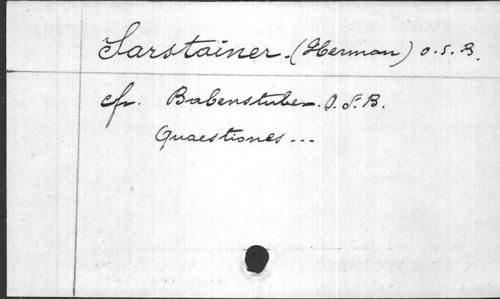 Sarstainer. (Herman) O.S.B.
cfr. Babenstuber. O.S.B.
Quaestiones ...